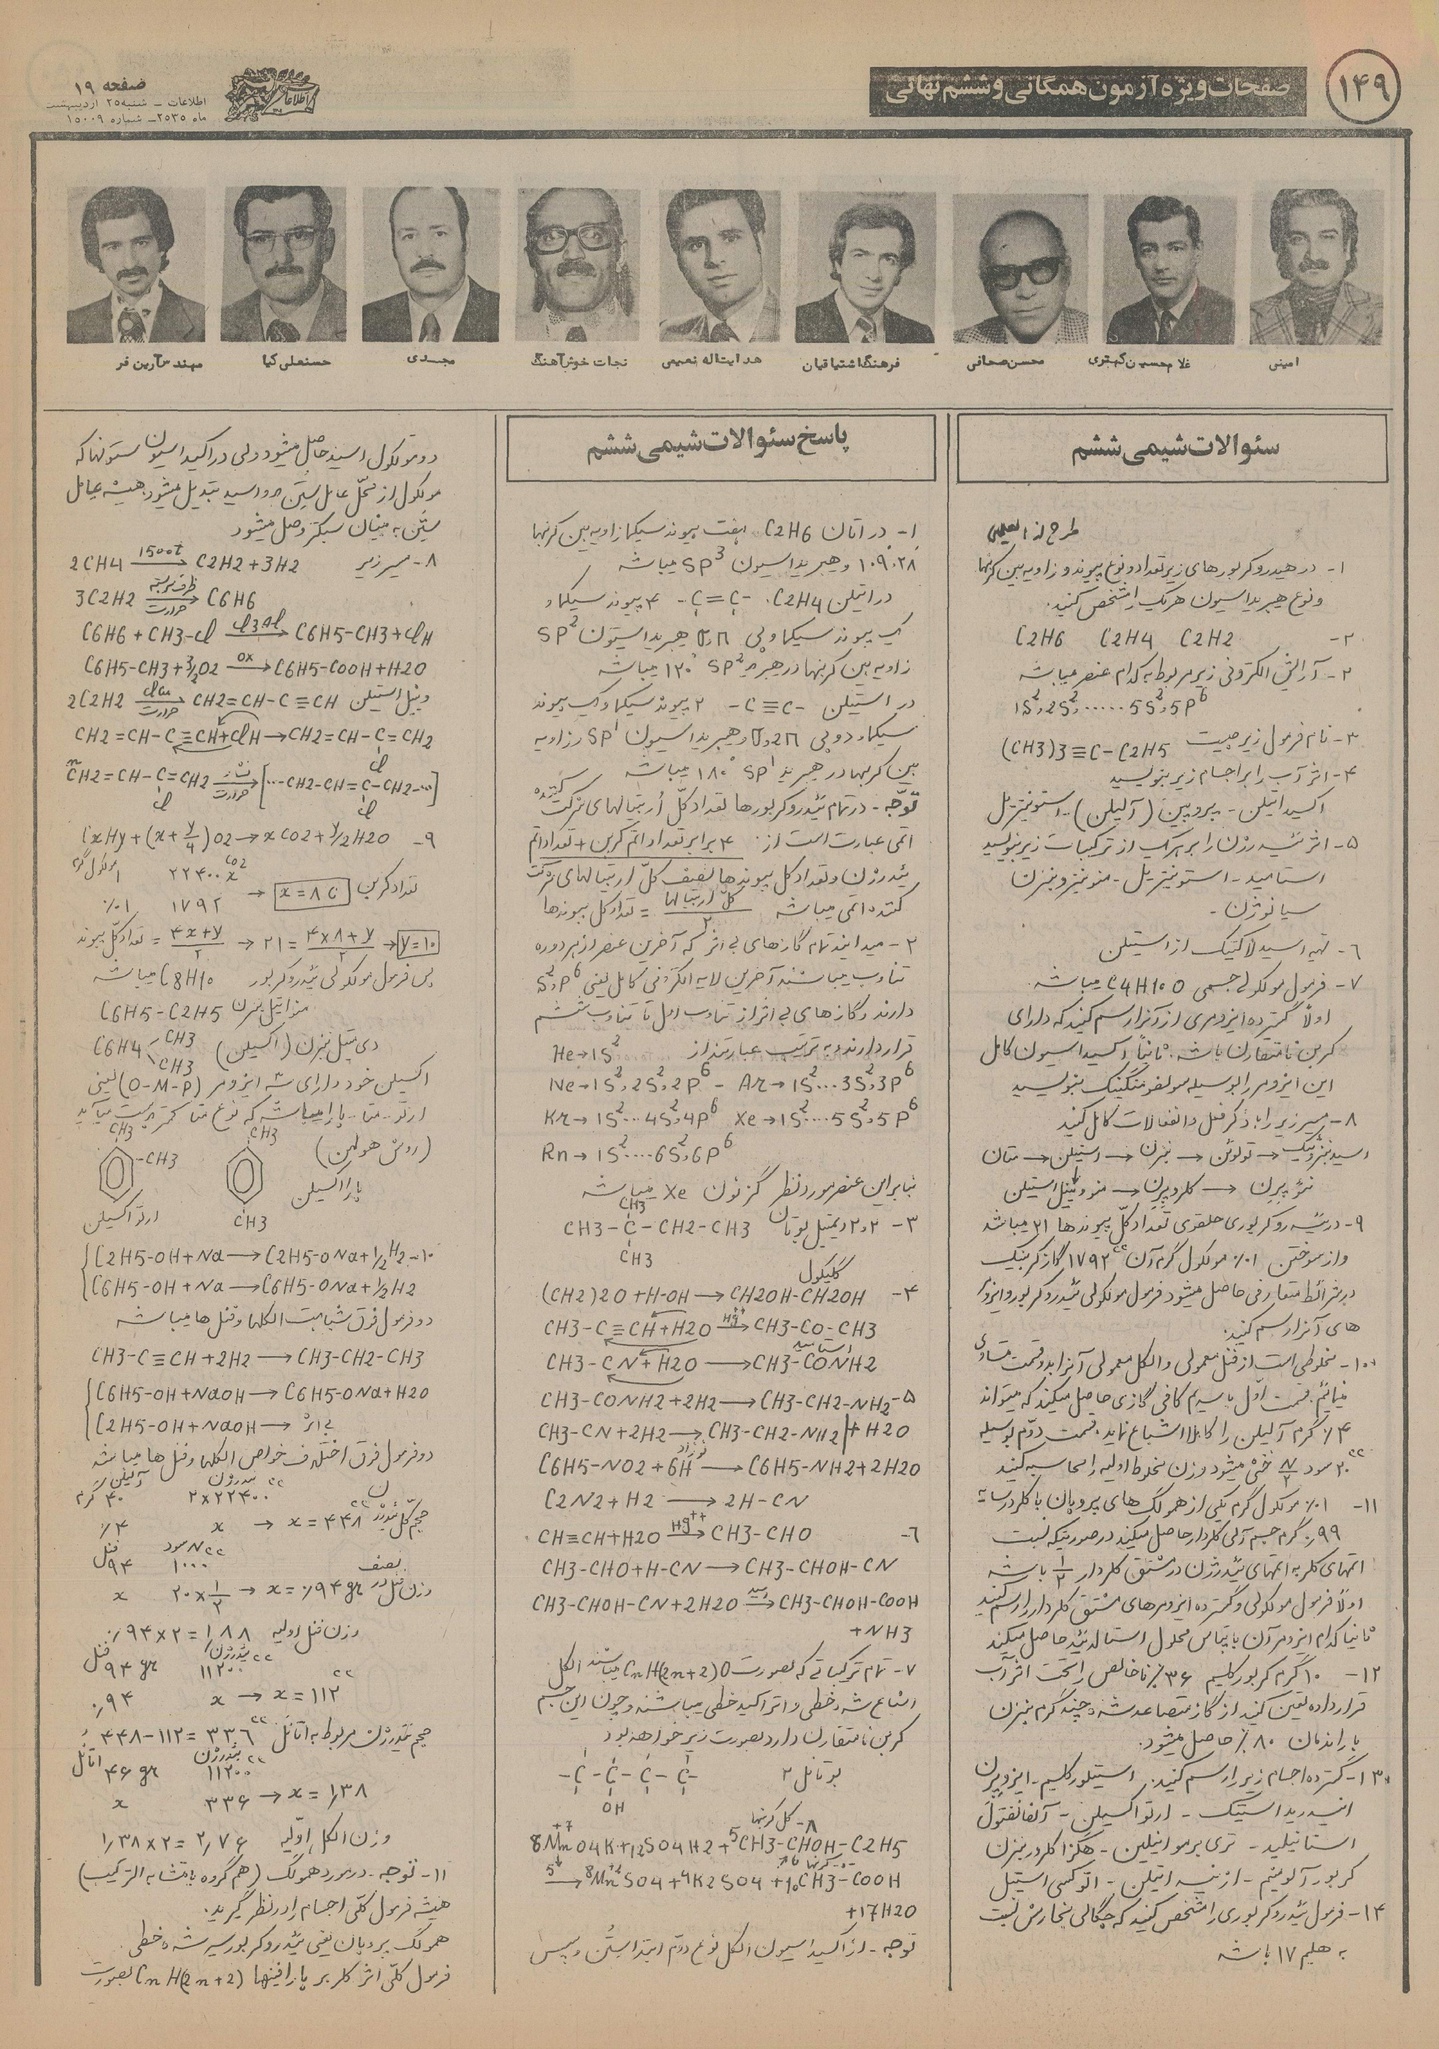 ۱۴۹
صفحات ویژه آزمون همگانی و ششم نهائی
صفحه ۱۹
اطلاعات - شنبه ۲۵ اردیبهشت
ماه ۲۵۳۵ - شماره ۱۵۰۰۹
اطلاعات
امینی
غلامحسین کهتری
محسن صحافی
فرهنگ اشتیاقیان
هدایت‌اله نعیمی
نجات خوش‌آهنگ
مجدی
حسنعلی کیا
مهندس آرین فر
سئوالات شیمی ششم
۱- در هیدروکربورهای زیر تعداد و نوع پیوند و زاویه بین کربنها
و نوع هیبریداسیون هریک را مشخص کنید.
C2H6 C2H4 C2H2
۲- آرایش الکترونی زیر مربوط به کدام عنصر میباشد
1S²2S²......5S²5P⁶
۳- نام فرمول زیر چیست (CH3)3≡C-C2H5
۴- اثر آب را بر اجسام زیر بنویسید
اکسید اتیلن - پروپین (آلیلن) - استونیتریل
۵- اثر ئیدرژن را بر هریک از ترکیبات زیر بنویسید
استامید - استونیتریل - منونیتروبنزن
سیانوژن -
۶- تهیه اسید لاکتیک از استیلن
۷- فرمول مولکولی جسمی C4H10O میباشد
اولاً گسترده ایزومری از آنرا رسم کنید که دارای
کربن نامتقارن باشد. ثانیاً اکسیداسیون کامل
این ایزومر را بوسیله سولفومنگنیک بنویسید
۸- مسیر زیر را با ذکر فعل و انفعالات کامل کنید
متان → استیلن → بنزن → تولوئن → اسید بنزوئیک
منو وینیل استیلن → کلروپرن → نئوپرن
۹- در ئیدروکربوری حلقوی تعداد کل پیوندها ۲۱ میباشد
و از سوختن ۰۱٪ مولکول گرم آن ۱۷۹۲cc گاز کربنیک
در شرائط متعارفی حاصل میشود فرمول مولکولی ئیدروکربور و ایزومر
های آنرا رسم کنید.
۱۰- مخلوطی است از فنل معمولی و الکل معمولی آنرا بدو قسمت مساوی
میکنیم قسمت اول با سدیم کافی گازی حاصل میکند که میتواند
۴٪ گرم آلیلن را کاملا اشباع نماید. قسمت دوم بوسیله
۲۰cc سود N/۲ خنثی میشود وزن مخلوط اولیه را محاسبه کنید
۱۱- ۰۱٪ مولکول گرم یکی از همولگ های پروپان با کلر در سایه
۰٫۹۹ گرم جسم آلی کلردار حاصل میکند در صورتیکه نسبت
اتمهای کلر به اتمهای ئیدرژن در مشتق کلردار ۱/۲ باشد
اولاً فرمول مولکولی و گسترده ایزومرهای مشتق کلردار را رسم کنید
ثانیا کدام ایزومر آن با پتاس محلول استالدئید حاصل میکند
۱۲- ۱۰ گرم کربور کلسیم ۳۶٪ ناخالص را تحت اثر آب
قرار داده تعیین کنید از گاز متصاعد شده چند گرم بنزن
با راندمان ۸۰٪ حاصل میشود.
۱۳- گسترده اجسام زیر را رسم کنید. استیلور کلسیم - ایزوپرن
انیدرید استیک - ارتواکسیلن - آلفانفتول
استانیلید - تری برموانیلین - هگزا کلرور بنزن
کربور آلومینیم - ازنید اتیلن - اتوکسی استیل
۱۴- فرمول ئیدروکربوری را مشخص کنید که چگالی بخارش نسبت
به هلیم ۱۷ باشد
پاسخ سئوالات شیمی ششم
۱- در اتان C2H6 هفت پیوند سیگما زاویه بین کربنها
۱۰۹٫۲۸ و هیبریداسیون SP³ میباشد
در اتیلن C2H4 -C=C- ۴ پیوند سیگما و
یک پیوند سیگما و پی σ,π هیبریداسیون SP²
زاویه بین کربنها در هیبرید SP² ۱۲۰° میباشد
در استیلن -C≡C- ۲ پیوند سیگما و یک پیوند
سیگما و دو پی σ و 2π و هیبریداسیون SP¹ زاویه
بین کربنها در هیبرید SP¹ ۱۸۰° میباشد
توجه - در تمام ئیدروکربورها تعداد کل اربیتالهای شرکت کننده
اتمی عبارت است از. ۴ برابر تعداد اتم کربن + تعداد اتم
ئیدرژن و تعداد کل پیوندها نصف کل اربیتالهای شرکت
کننده اتمی میباشد کل اربیتالها/۲ = تعداد کل پیوندها
۲- میدانید تمام گازهای بی اثر که آخرین عنصر از هر دوره
تناوب میباشند آخرین لایه الکترونی کامل یعنی S²P⁶
دارند و گازهای بی اثر از تناوب اول تا تناوب ششم
قرار دارند و به ترتیب عبارتند از He→1S²
Ne→1S²2S²2P⁶ - Ar→1S²...3S²3P⁶
Kr→1S²...4S²4P⁶ Xe→1S²....5S²5P⁶
Rn→1S²....6S²6P⁶
بنابراین عنصر مورد نظر گزنون Xe میباشد
۳- ۲ر۲ دیمتیل بوتان CH3-C-CH2-CH3
CH3
CH3
گلیکول
۴- (CH2)2O+H-OH→CH2OH-CH2OH
CH3-C≡CH+H2O Hg++→CH3-CO-CH3
استامید
CH3-CN+H2O→CH3-CONH2
۵- CH3-CONH2+2H2→CH3-CH2-NH2+H2O
CH3-CN+2H2→CH3-CH2-NH2
C6H5-NO2+6H→C6H5-NH2+2H2O
C2N2+H2→2H-CN
۶- CH≡CH+H2O Hg++→CH3-CHO
CH3-CHO+H-CN→CH3-CHOH-CN
CH3-CHOH-CN+2H2O اسید→CH3-CHOH-COOH
+NH3
۷- تمام ترکیباتی که بصورت CnH(2n+2)O میباشند الکل
اشباع شده خطی و اتراکسید خطی میباشند و چون این جسم
کربن نامتقارن دارد بصورت زیر خواهد بود
بوتانل ۲ -C-C-C-C-
OH
۸- کل کربنها
8MnO4K+12SO4H2+5CH3-CHOH-C2H5
→8MnSO4+4K2SO4+10CH3-COOH
+17H2O
توجه - از اکسیداسیون الکل نوع دوم ابتدا ستن و سپس
دو مولکول اسید حاصل میشود ولی در اکسیداسیون ستونها که
مولکول از محل عامل ستن بدو اسید تبدیل میشود. همیشه عامل
ستن به بنیان سبکتر وصل میشود
۸- مسیر زیر 2CH4 1500t→C2H2+3H2
3C2H2 ظرف سربسته حرارت→C6H6
C6H6+CH3-Cl Cl3Al→C6H5-CH3+ClH
C6H5-CH3+3/2O2 OX→C6H5-COOH+H2O
وینیل استیلن 2C2H2 ClCu حرارت→CH2=CH-C≡CH
CH2=CH-C≡CH+ClH→CH2=CH-C=CH2
Cl
nCH2=CH-C=CH2 فشار حرارت→[...-CH2-CH=C-CH2-...]
Cl Cl
۹- CxHy+(x+y/4)O2→xCO2+y/2H2O
مولکول گرم ۱ ۲۲۴۰۰x CO2
تعداد کربن x=8C → ۱۷۹۲ ۰۱٪
تعداد کل پیوند = 4x+y/۲ → ۲۱=4×8+y/۲ → y=10
پس فرمول مولکولی ئیدروکربور C8H10 میباشد
منو اتیل بنزن C6H5-C2H5
دی متیل بنزن (اکسیلن) C6H4 CH3 CH3
اکسیلن خود دارای سه ایزومر (O-M-P) یعنی
ارتو - متا - پارا میباشد که نوع متا کمتر بدست میآید
(روش هوفمن)
CH3 -CH3 CH3
CH3
پارااکسیلن
ارتواکسیلن
۱۰- C2H5-OH+Na→C2H5-ONa+1/2H2
C6H5-OH+Na→C6H5-ONa+1/2H2
دو فرمول فوق شباهت الکلها و فنل ها میباشد
CH3-C≡CH+2H2→CH3-CH2-CH3
C6H5-OH+NaOH→C6H5-ONa+H2O
C2H5-OH+NaOH→بی اثر
دو فرمول فوق اختلاف خواص الکلها و فنل ها میباشد
آلیلن ئیدروژن
۴۰ گرم ۲×۲۲۴۰۰cc
حجم کل ئیدرژن x=۴۴۸cc → x ۴٪
فنل سود N cc
۹۴ ۱۰۰۰
وزن فنل در نصف x=٫۹۴gr → ۲۰×۱/۲ x
وزن فنل اولیه ۱٫۸۸=۲×٫۹۴
فنل ئیدرژن
۹۴gr ۱۱۲۰۰cc
۰٫۹۴ x → x=۱۱۲cc
حجم ئیدرژن مربوط به اتانل ۳۳۶cc=۱۱۲-۴۴۸
اتانل ئیدرژن
۴۶gr ۱۱۲۰۰cc
x ۳۳۶ → x=۱٫۳۸
وزن الکل اولیه ۲٫۷۶=۲×۱٫۳۸
۱۱- توجه - در مورد همولگ (هم گروه یا متشابه الترکیب)
همیشه فرمول کلی اجسام را در نظر گیرید.
همولگ پروپان یعنی ئیدروکربور سیر شده خطی.
فرمول کلی اثر کلر بر پارافینها CnH(2n+2) بصورت